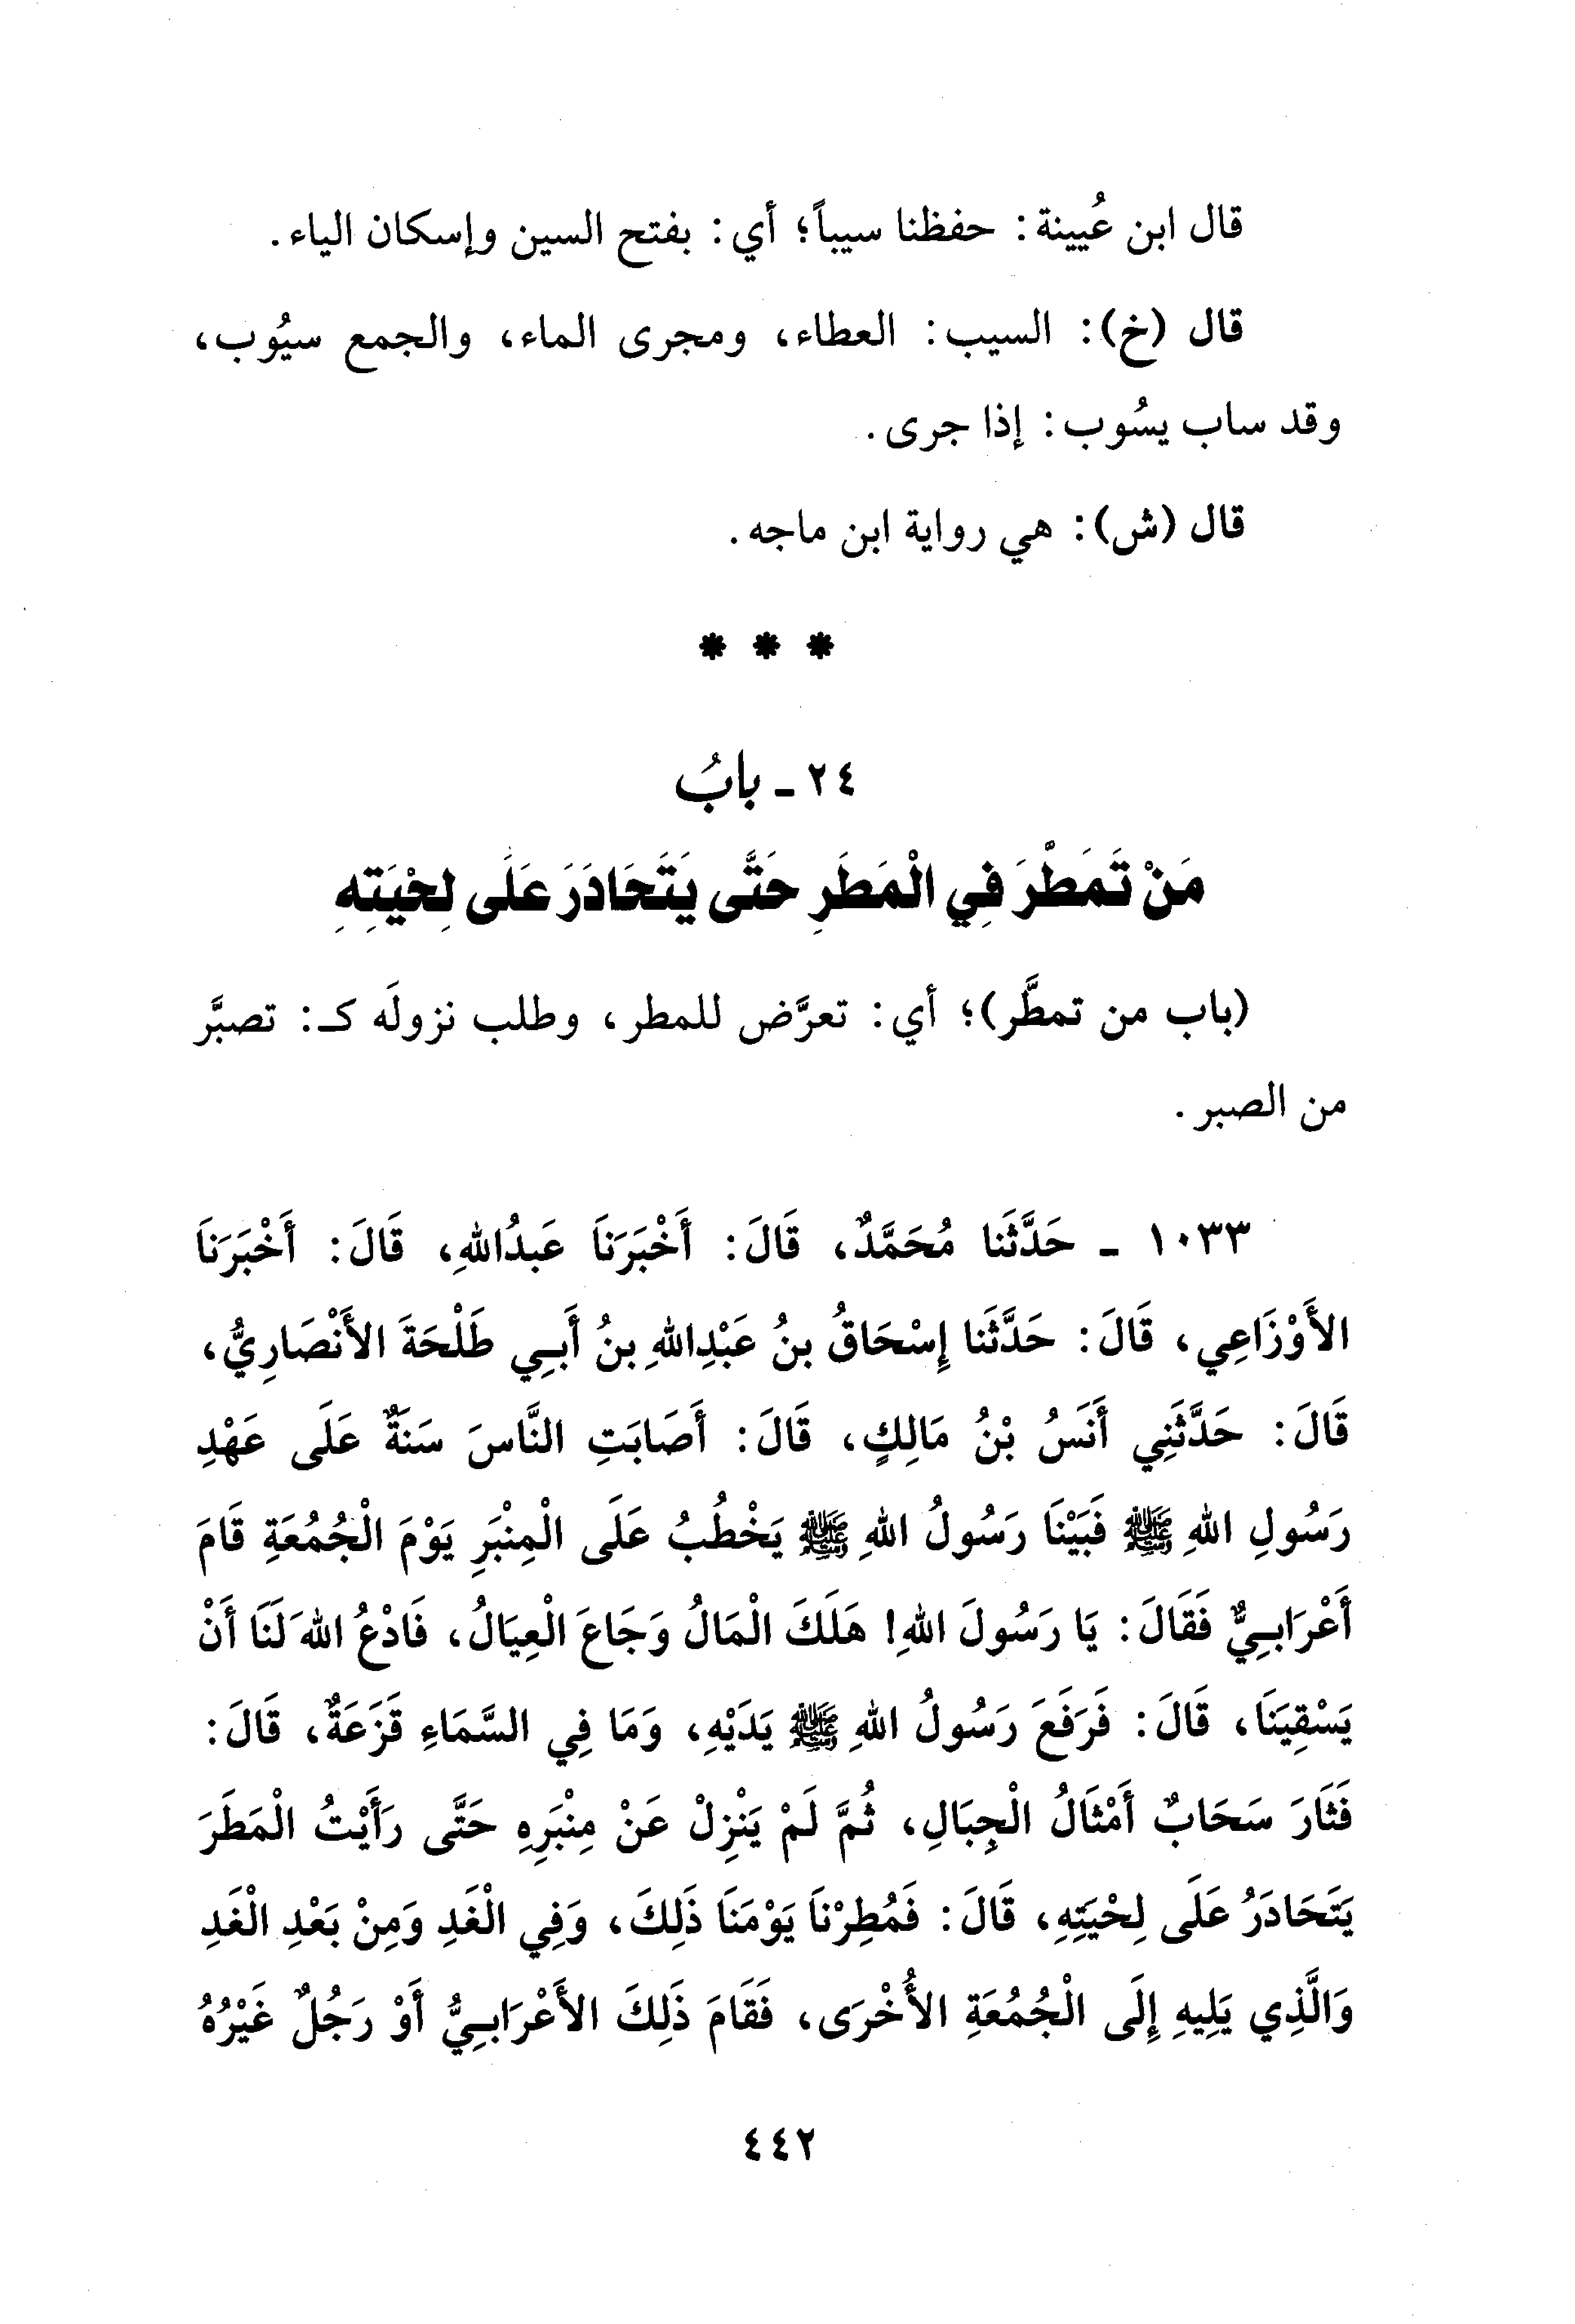 قال ابن عُيينة: حفظنا سيباً؛ أي: بفتح السين وإسكان الياء.
قال (خ): السيب: العطاء، ومجرى الماء، والجمع سيُوب،
وقد ساب يسُوب: إذا جرى.
قال (ش): هي رواية ابن ماجه.
* * *
٢٤ ـ بابُ
مَنْ تَمَطَّرَ فِي الْمَطَرِ حَتَّى يَتَحَادَرَ عَلَى لِحْيَتِهِ
(باب من تمطَّر)؛ أي: تعرَّض للمطر، وطلب نزولَه كـ: تصبَّر
من الصبر.
١٠٣٣ ـ حَدَّثَنا مُحَمَّدٌ، قَالَ: أَخْبَرَنَا عَبدُاللهِ، قَالَ: أَخْبَرَنَا
الأَوْزَاعِي، قَالَ: حَدَّثَنا إِسْحَاقُ بنُ عَبْدِاللهِ بنُ أَبِي طَلْحَةَ الأَنْصَارِيُّ،
قَالَ: حَدَّثَنِي أَنَسُ بْنُ مَالِكٍ، قَالَ: أَصَابَتِ النَّاسَ سَنَةٌ عَلَى عَهْدِ
رَسُولِ اللهِ ﷺ فَبَيْنَا رَسُولُ اللهِ ﷺ يَخْطُبُ عَلَى الْمِنْبَرِ يَوْمَ الْجُمُعَةِ قَامَ
أَعْرَابِيٌّ فَقَالَ: يَا رَسُولَ اللهِ! هَلَكَ الْمَالُ وَجَاعَ الْعِيَالُ، فَادْعُ اللهَ لَنَا أَنْ
يَسْقِيَنَا، قَالَ: فَرَفَعَ رَسُولُ اللهِ ﷺ يَدَيْهِ، وَمَا فِي السَّمَاءِ قَزَعَةٌ، قَالَ:
فَثَارَ سَحَابٌ أَمْثَالُ الْجِبَالِ، ثُمَّ لَمْ يَنْزِلْ عَنْ مِنْبَرِهِ حَتَّى رَأَيْتُ الْمَطَرَ
يَتَحَادَرُ عَلَى لِحْيَتِهِ، قَالَ: فَمُطِرْنَا يَوْمَنَا ذَلِكَ، وَفِي الْغَدِ وَمِنْ بَعْدِ الْغَدِ
وَالَّذِي يَلِيهِ إِلَى الْجُمُعَةِ الأُخْرَى، فَقَامَ ذَلِكَ الأَعْرَابِيُّ أَوْ رَجُلٌ غَيْرُهُ
٤٤٢